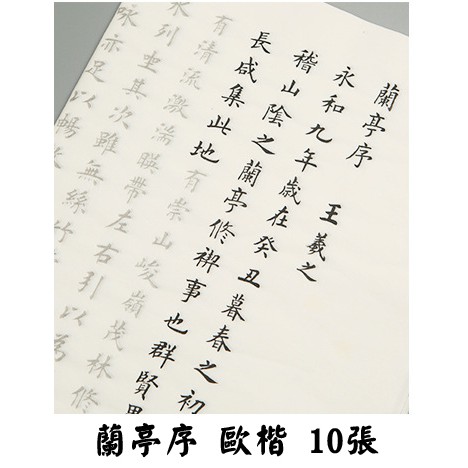 蘭亭序 王羲之
永和九年歲在癸丑暮春之初
稽山陰之蘭亭修禊事也群賢
長咸集此地 有崇山峻嶺茂林修
有清流激湍暎帶左右引以為
水列坐其次雖無絲竹
詠亦足以暢
蘭亭序 歐楷 10張